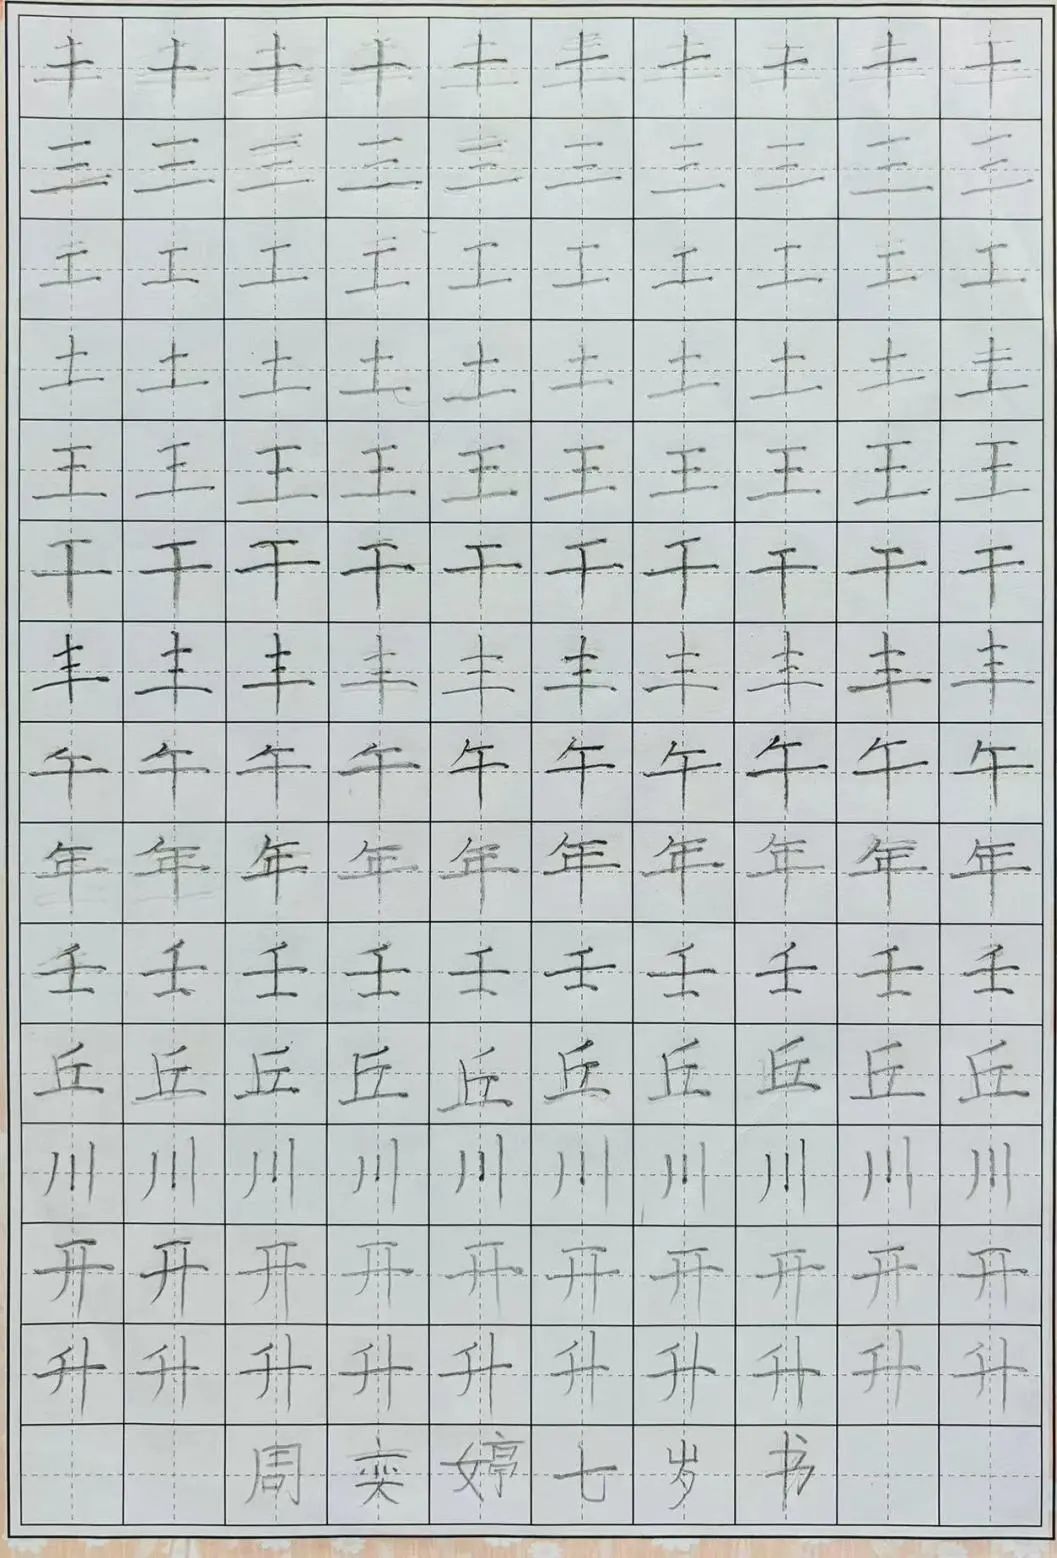 十十十十十十十十十十
三三三三三三三三三三
工工工工工工工工工工
土土土土土土土土土土
王王王王王王王王王王
干干干干干干干干干干
丰丰丰丰丰丰丰丰丰丰
午午午午午午午午午午
年年年年年年年年年年
壬壬壬壬壬壬壬壬壬壬
丘丘丘丘丘丘丘丘丘丘
川川川川川川川川川川
开开开开开开开开开开
升升升升升升升升升升
周奕婷七岁书